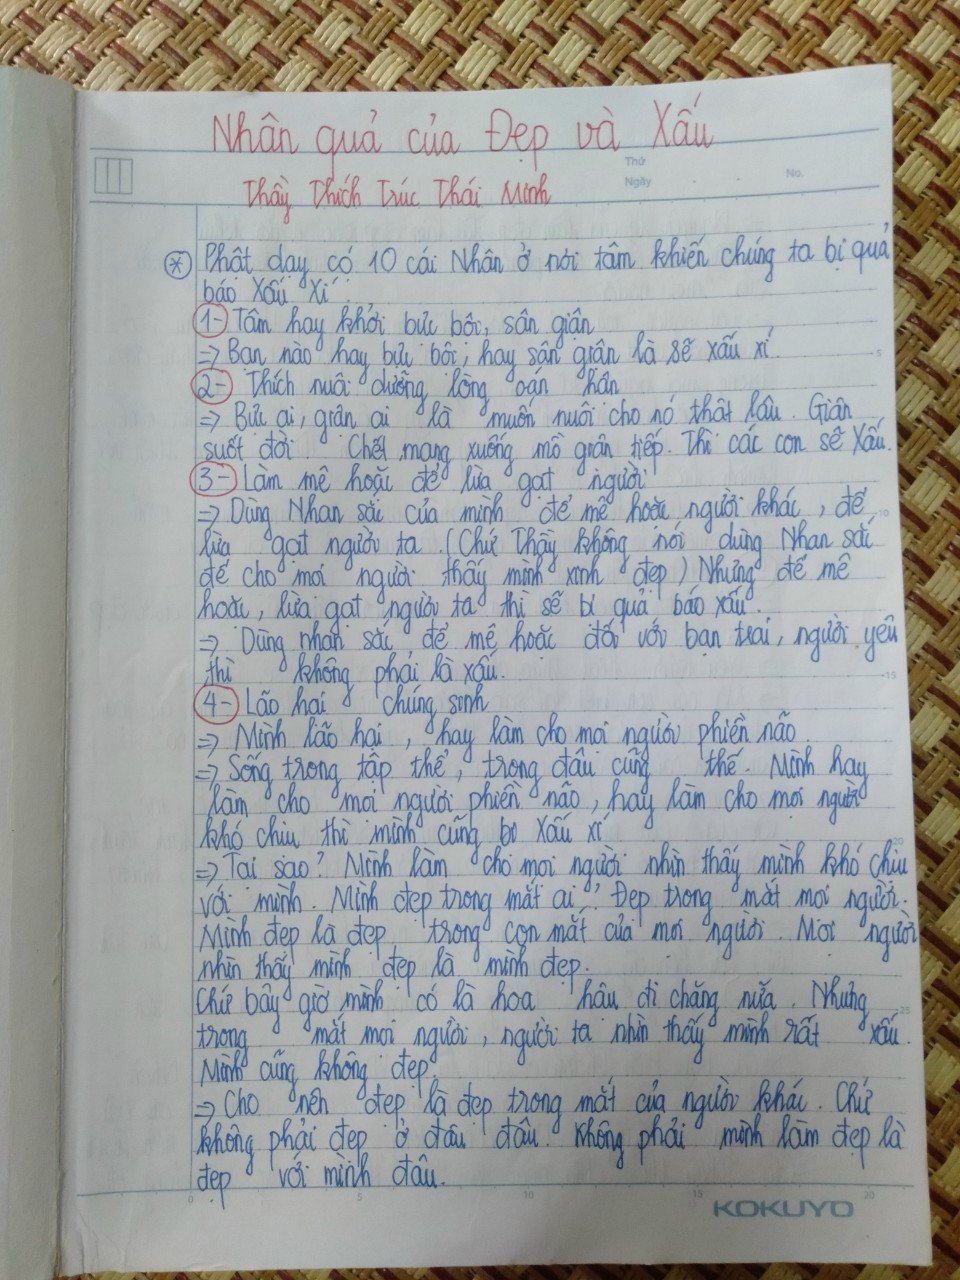 Nhân quả của Đẹp và Xấu
Thứ
Ngày
No.
Thầy Thích Trúc Thái Minh
* Phật dạy có 10 cái Nhân ở nơi tâm khiến chúng ta bị quả
báo Xấu Xí.
1- Tâm hay khởi bực bội, sân giận
=> Bạn nào hay bực bội, hay sân giận là sẽ xấu xí.
2- Thích nuôi dưỡng lòng oán hận
=> Bực ai, giận ai là muốn nuôi cho nó thật lâu. Giận
suốt đời Chết mang xuống mồ giận tiếp. Thì các con sẽ Xấu.
3- Làm mê hoặc để lừa gạt người
=> Dùng Nhan sắc của mình để mê hoặc người khác, để
lừa gạt người ta. (Chứ Thầy không nói dùng Nhan sắc
để cho mọi người thấy mình xinh đẹp) Nhưng để mê
hoặc, lừa gạt người ta thì sẽ bị quả báo xấu.
=> Dùng nhan sắc để mê hoặc đối với bạn trai, người yêu
thì không phải là xấu.
4- Não hại chúng sinh
=> Mình não hại, hay làm cho mọi người phiền não.
=> Sống trong tập thể, trong đâu cũng thế. Mình hay
làm cho mọi người phiền não, hay làm cho mọi người
khó chịu thì mình cũng bị Xấu xí.
=> Tại sao? Mình làm cho mọi người nhìn thấy mình khó chịu
với mình. Mình đẹp trong mắt ai? Đẹp trong mắt mọi người.
Mình đẹp là đẹp trong con mắt của mọi người. Mọi người
nhìn thấy mình đẹp là mình đẹp.
Chứ bây giờ mình có là hoa hậu đi chăng nữa. Nhưng
trong mắt mọi người, người ta nhìn thấy mình rất xấu.
Mình cũng không đẹp.
=> Cho nên đẹp là đẹp trong mắt của người khác. Chứ
không phải đẹp ở đâu đâu. Không phải mình làm đẹp là
đẹp với mình đâu.
0 5 10 15 20
KOKUYO